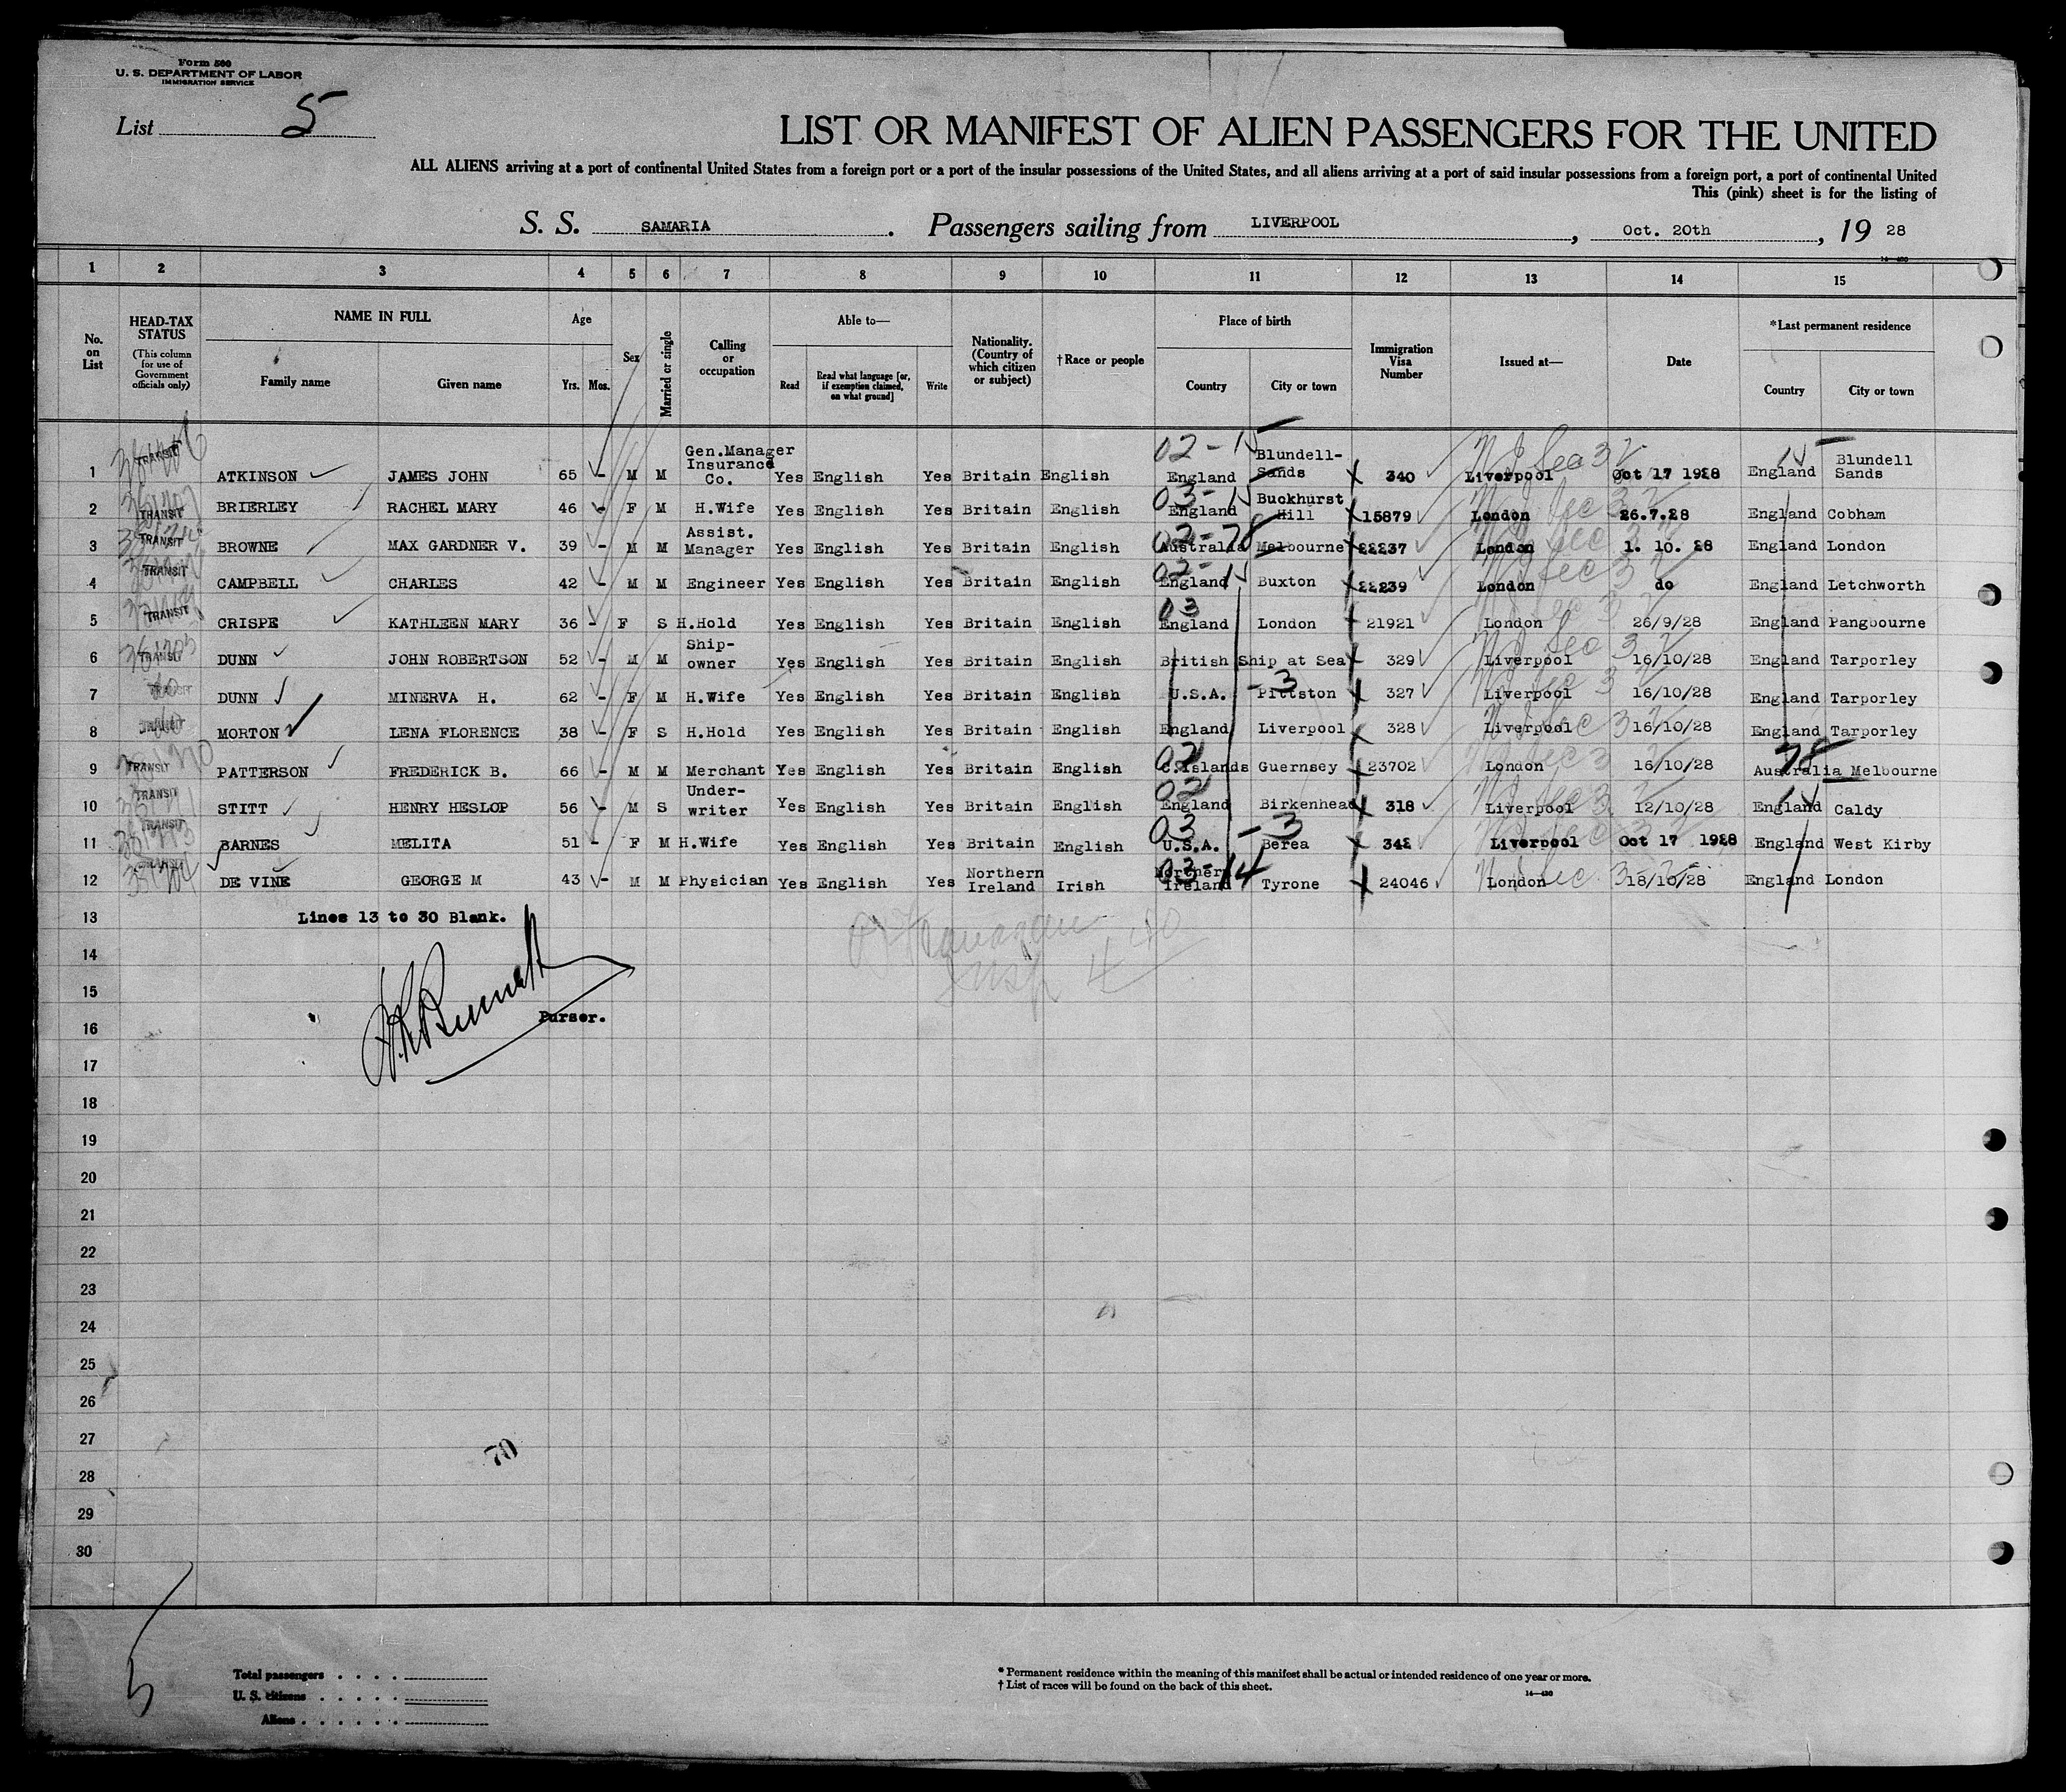 Form 500
U. S. DEPARTMENT OF LABOR
IMMIGRATION SERVICE
List 5
LIST OR MANIFEST OF ALIEN PASSENGERS FOR THE UNITED
ALL ALIENS arriving at a port of continental United States from a foreign port or a port of the insular possessions of the United States, and all aliens arriving at a port of said insular possessions from a foreign port, a port of continental United
This (pink) sheet is for the listing of
S. S. SAMARIA. Passengers sailing from LIVERPOOL, Oct. 20th, 19 28
1 2 3 4 5 6 7 8 9 10 11 12 13 14 15
No. on List
HEAD-TAX STATUS
(This column for use of Government officials only)
NAME IN FULL
Family name Given name
Age
Yrs. Mos.
Sex
Married or single
Calling or occupation
Able to—
Read
Read what language [or, if exemption claimed, on what ground]
Write
Nationality. (Country of which citizen or subject)
†Race or people
Place of birth
Country City or town
Immigration Visa Number
Issued at—
Date
*Last permanent residence
Country City or town
1 TRANSIT ATKINSON JAMES JOHN 65 - M M Gen.Manager Insurance Co. Yes English Yes Britain English 02-15 England Blundell-Sands 340 Liverpool Oct 17 1928 England Blundell Sands
2 TRANSIT BRIERLEY RACHEL MARY 46 - F M H.Wife Yes English Yes Britain English 03-15 England Buckhurst Hill 15879 London 26.7.28 England Cobham
3 TRANSIT BROWNE MAX GARDNER V. 39 - M M Assist. Manager Yes English Yes Britain English 02-78 Australia Melbourne 22237 London 1. 10. 28 England London
4 TRANSIT CAMPBELL CHARLES 42 - M M Engineer Yes English Yes Britain English 02- England Buxton 22239 London do England Letchworth
5 TRANSIT CRISPE KATHLEEN MARY 36 - F S H.Hold Yes English Yes Britain English 03 England London 21921 London 26/9/28 England Pangbourne
6 TRANSIT DUNN JOHN ROBERTSON 52 - M M Ship-owner Yes English Yes Britain English British Ship at Sea 329 Liverpool 16/10/28 England Tarporley
7 TRANSIT DUNN MINERVA H. 62 - F M H.Wife Yes English Yes Britain English U.S.A. -3 Pittston 327 Liverpool 16/10/28 England Tarporley
8 MORTON LENA FLORENCE 38 - F S H.Hold Yes English Yes Britain English England Liverpool 328 Liverpool 16/10/28 England Tarporley
9 TRANSIT PATTERSON FREDERICK B. 66 - M M Merchant Yes English Yes Britain English 02 C.Islands Guernsey 23702 London 16/10/28 78 Australia Melbourne
10 TRANSIT STITT HENRY HESLOP 56 - M S Under-writer Yes English Yes Britain English 02 England Birkenhead 318 Liverpool 12/10/28 England Caldy
11 TRANSIT BARNES MELITA 51 - F M H.Wife Yes English Yes Britain English 03 -3 U.S.A. Berea 342 Liverpool Oct 17 1928 England West Kirby
12 TRANSIT DE VINE GEORGE M 43 - M M Physician Yes English Yes Northern Ireland Irish 03-14 Northern Ireland Tyrone 24046 London 18/10/28 England London
13 Lines 13 to 30 Blank.
14
15
16 Purser.
17
18
19
20
21
22
23
24
25
26
27
70
28
29
30
5
Total passengers
U. S. citizens
Aliens
* Permanent residence within the meaning of this manifest shall be actual or intended residence of one year or more.
† List of races will be found on the back of this sheet.